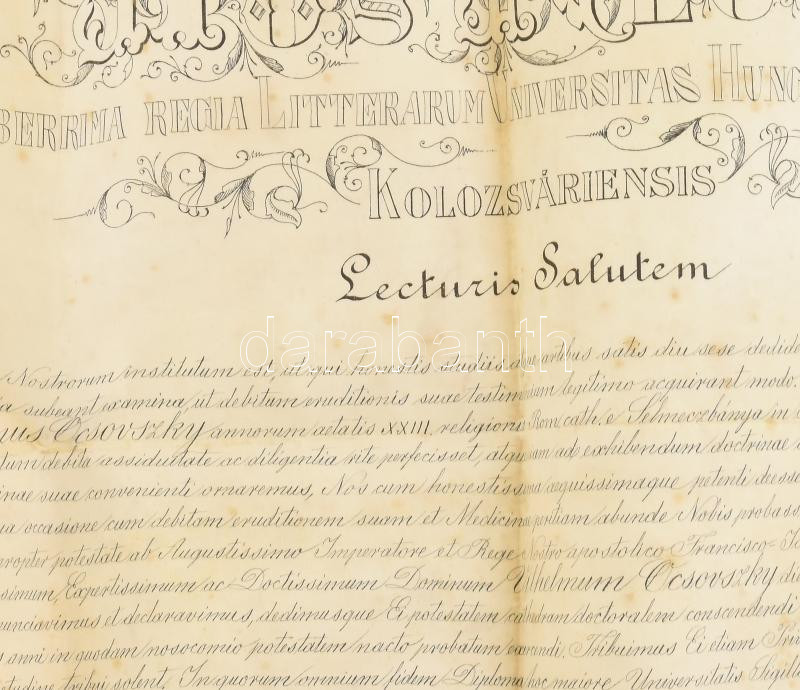 NOS REC
BERRIMA REGIA LITTERARUM UNIVERSITAS HUNG
KOLOZSVÁRIENSIS
Lecturis Salutem
Nostrorum institutum est, ut qui honestis studiis atque artibus satis diu sese dedide
subeant examina, ut debitum eruditionis suae testimonium legitimo acquirant modo.
mus Ocsovszky annorum aetatis XXIII, religionis Rom. cath. e Selmeczbánya in
tum debita assiduitate ac diligentia rite perfecisset, atque jam ad exhibendum doctrinae
inae suae convenienti ornaremus, Nos cum honestissima aequissimaque petenti deesse
ua occasione cum debitam eruditionem suam et Medicinae peritiam abunde Nobis probass
propter potestate ab Augustissimo Imperatore et Rege Nostro apostolico Francisco
ssimum, Expertissimum ac Doctissimum Dominum Vilhelmum Ocsovszky
nunciavimus et declaravimus, dedimusque Ei potestatem cathedram doctoralem conscendendi
anni in quodam nosocomio potestatem nacto probatum exercendi. Tribuimus Ei etiam
tribui solent. In quorum omnium fidem Diploma hoc maiore Universitatis Sigillo
darabanth